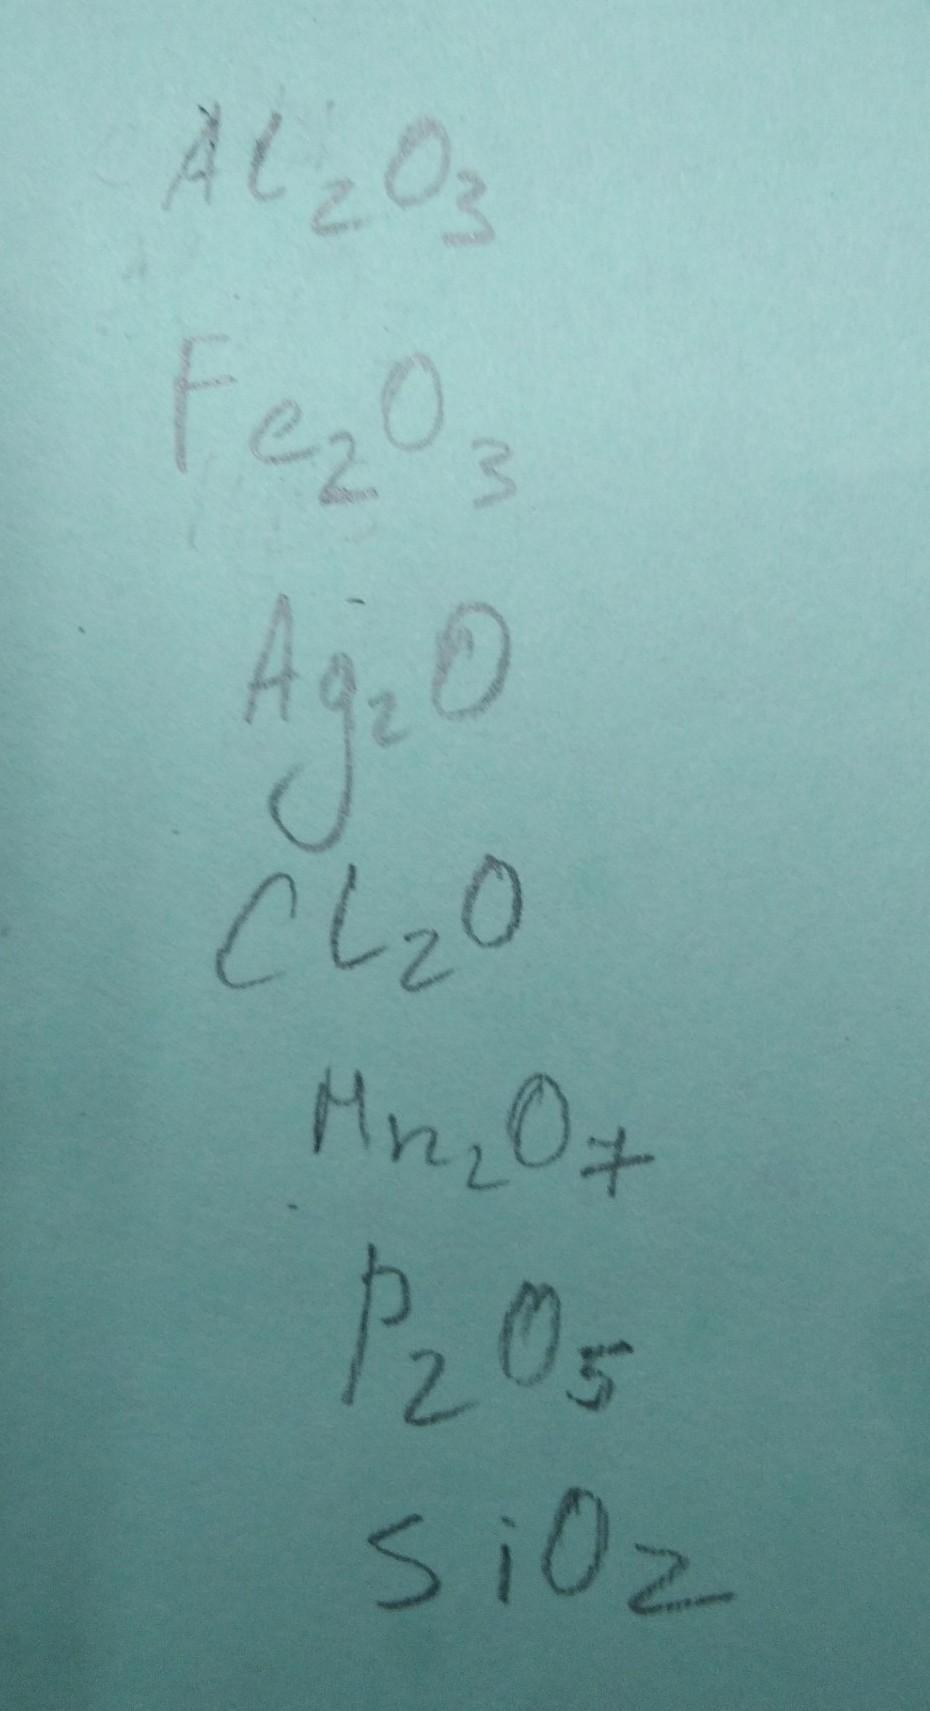 Al₂O₃
Fe₂O₃
Ag₂O
Cl₂O
Mn₂O₇
P₂O₅
SiO₂